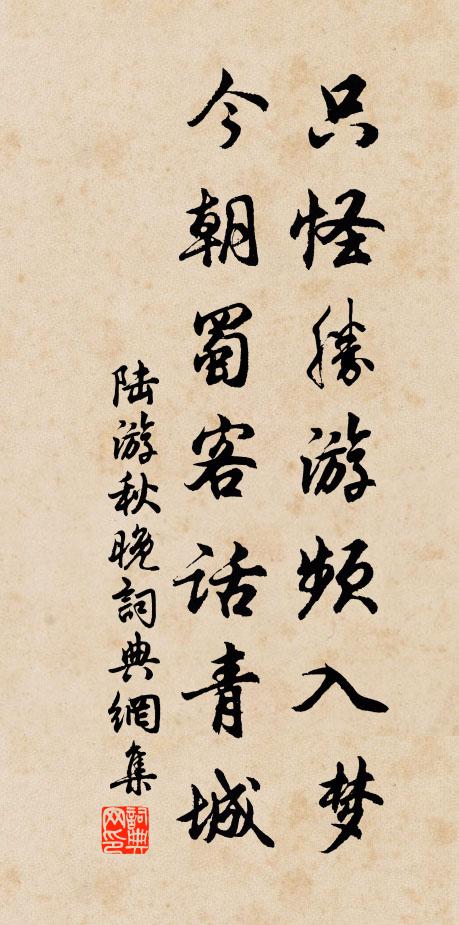 只怪勝游頻入梦
今朝蜀客话青城
陆游秋晚詞典網集
詞典
网印